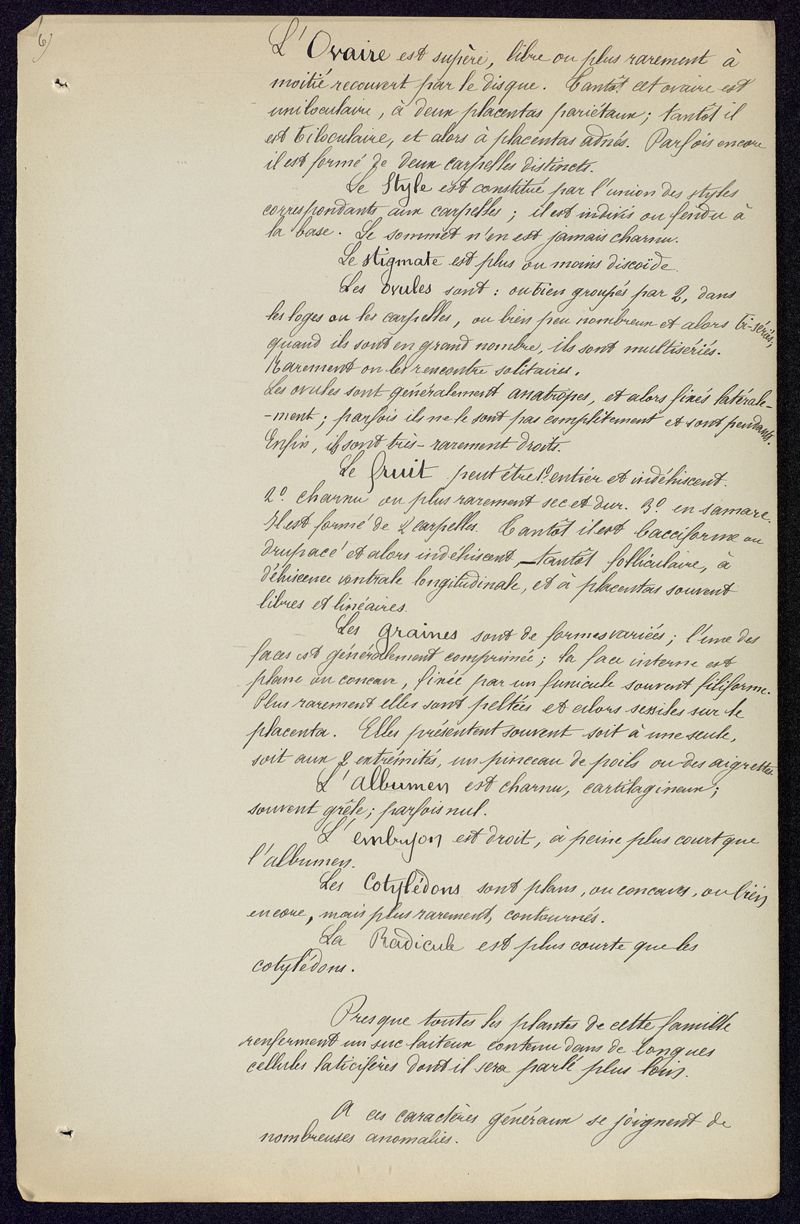 6)
L'Ovaire est supère, libre ou plus rarement à
moitié recouvert par le disque. Tantôt cet ovaire est
uniloculaire, à deux placentas pariétaux; tantôt il
est biloculaire, et alors à placentas adnés. Parfois encore
il est formé de deux carpelles distincts.
Le Style est constitué par l'union des styles
correspondants aux carpelles; il est indivis ou fendu à
la base. Le sommet n'en est jamais charnu.
Le stigmate est plus ou moins discoïde.
Les ovules sont: ou bien groupés par 2, dans
les loges ou les carpelles, ou bien peu nombreux et alors bi-sériés,
quand ils sont en grand nombre, ils sont multisériés.
Rarement on les rencontre solitaires.
Les ovules sont généralement anatropes, et alors fixés latérale-
-ment; parfois ils ne le sont pas complètement et sont pendants.
Enfin, ils sont très-rarement droits.
Le fruit peut être 1º entier et indéhiscent.
2º charnu ou plus rarement sec et dur. 3º en samare.
Il est formé de 2 carpelles. Tantôt il est bacciforme ou
drupacé et alors indéhiscent,—tantôt folliculaire, à
déhiscence ventrale longitudinale, et à placentas souvent
libres et linéaires.
Les graines sont de formes variées; l'une des
faces est généralement comprimée; la face interne est
plane ou concave, fixée par un funicule souvent filiforme.
Plus rarement elles sont peltées et alors sessiles sur le
placenta. Elles présentent souvent soit à une seule,
soit aux 2 extrémités, un pinceau de poils ou des aigrettes.
L'albumen est charnu, cartilagineux;
souvent grêle; parfois nul.
L'embryon est droit, à peine plus court que
l'albumen.
Les Cotylédons sont plans, ou concaves, ou bien
encore, mais plus rarement, contournés.
La Radicule est plus courte que les
cotylédons.
Presque toutes les plantes de cette famille
renferment un suc laiteux contenu dans de longues
cellules laticifères dont il sera parlé plus loin.
A ces caractères généraux se joignent de
nombreuses anomalies.